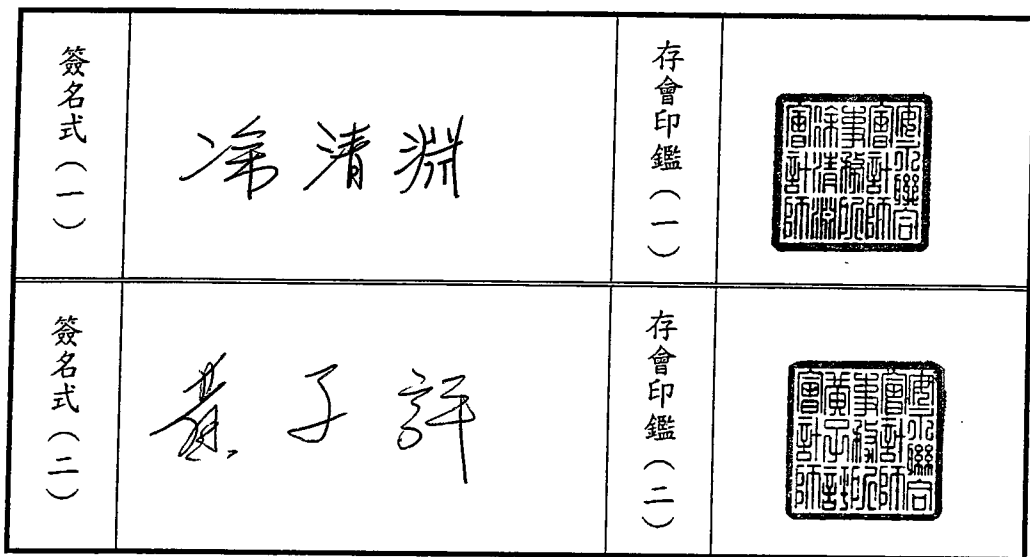 簽名式（一）
凃清淵
存會印鑑（一）
安永聯合
會計師
事務所
凃清淵
會計師
簽名式（二）
黃子評
存會印鑑（二）
安永聯合
會計師
事務所
黃子評
會計師